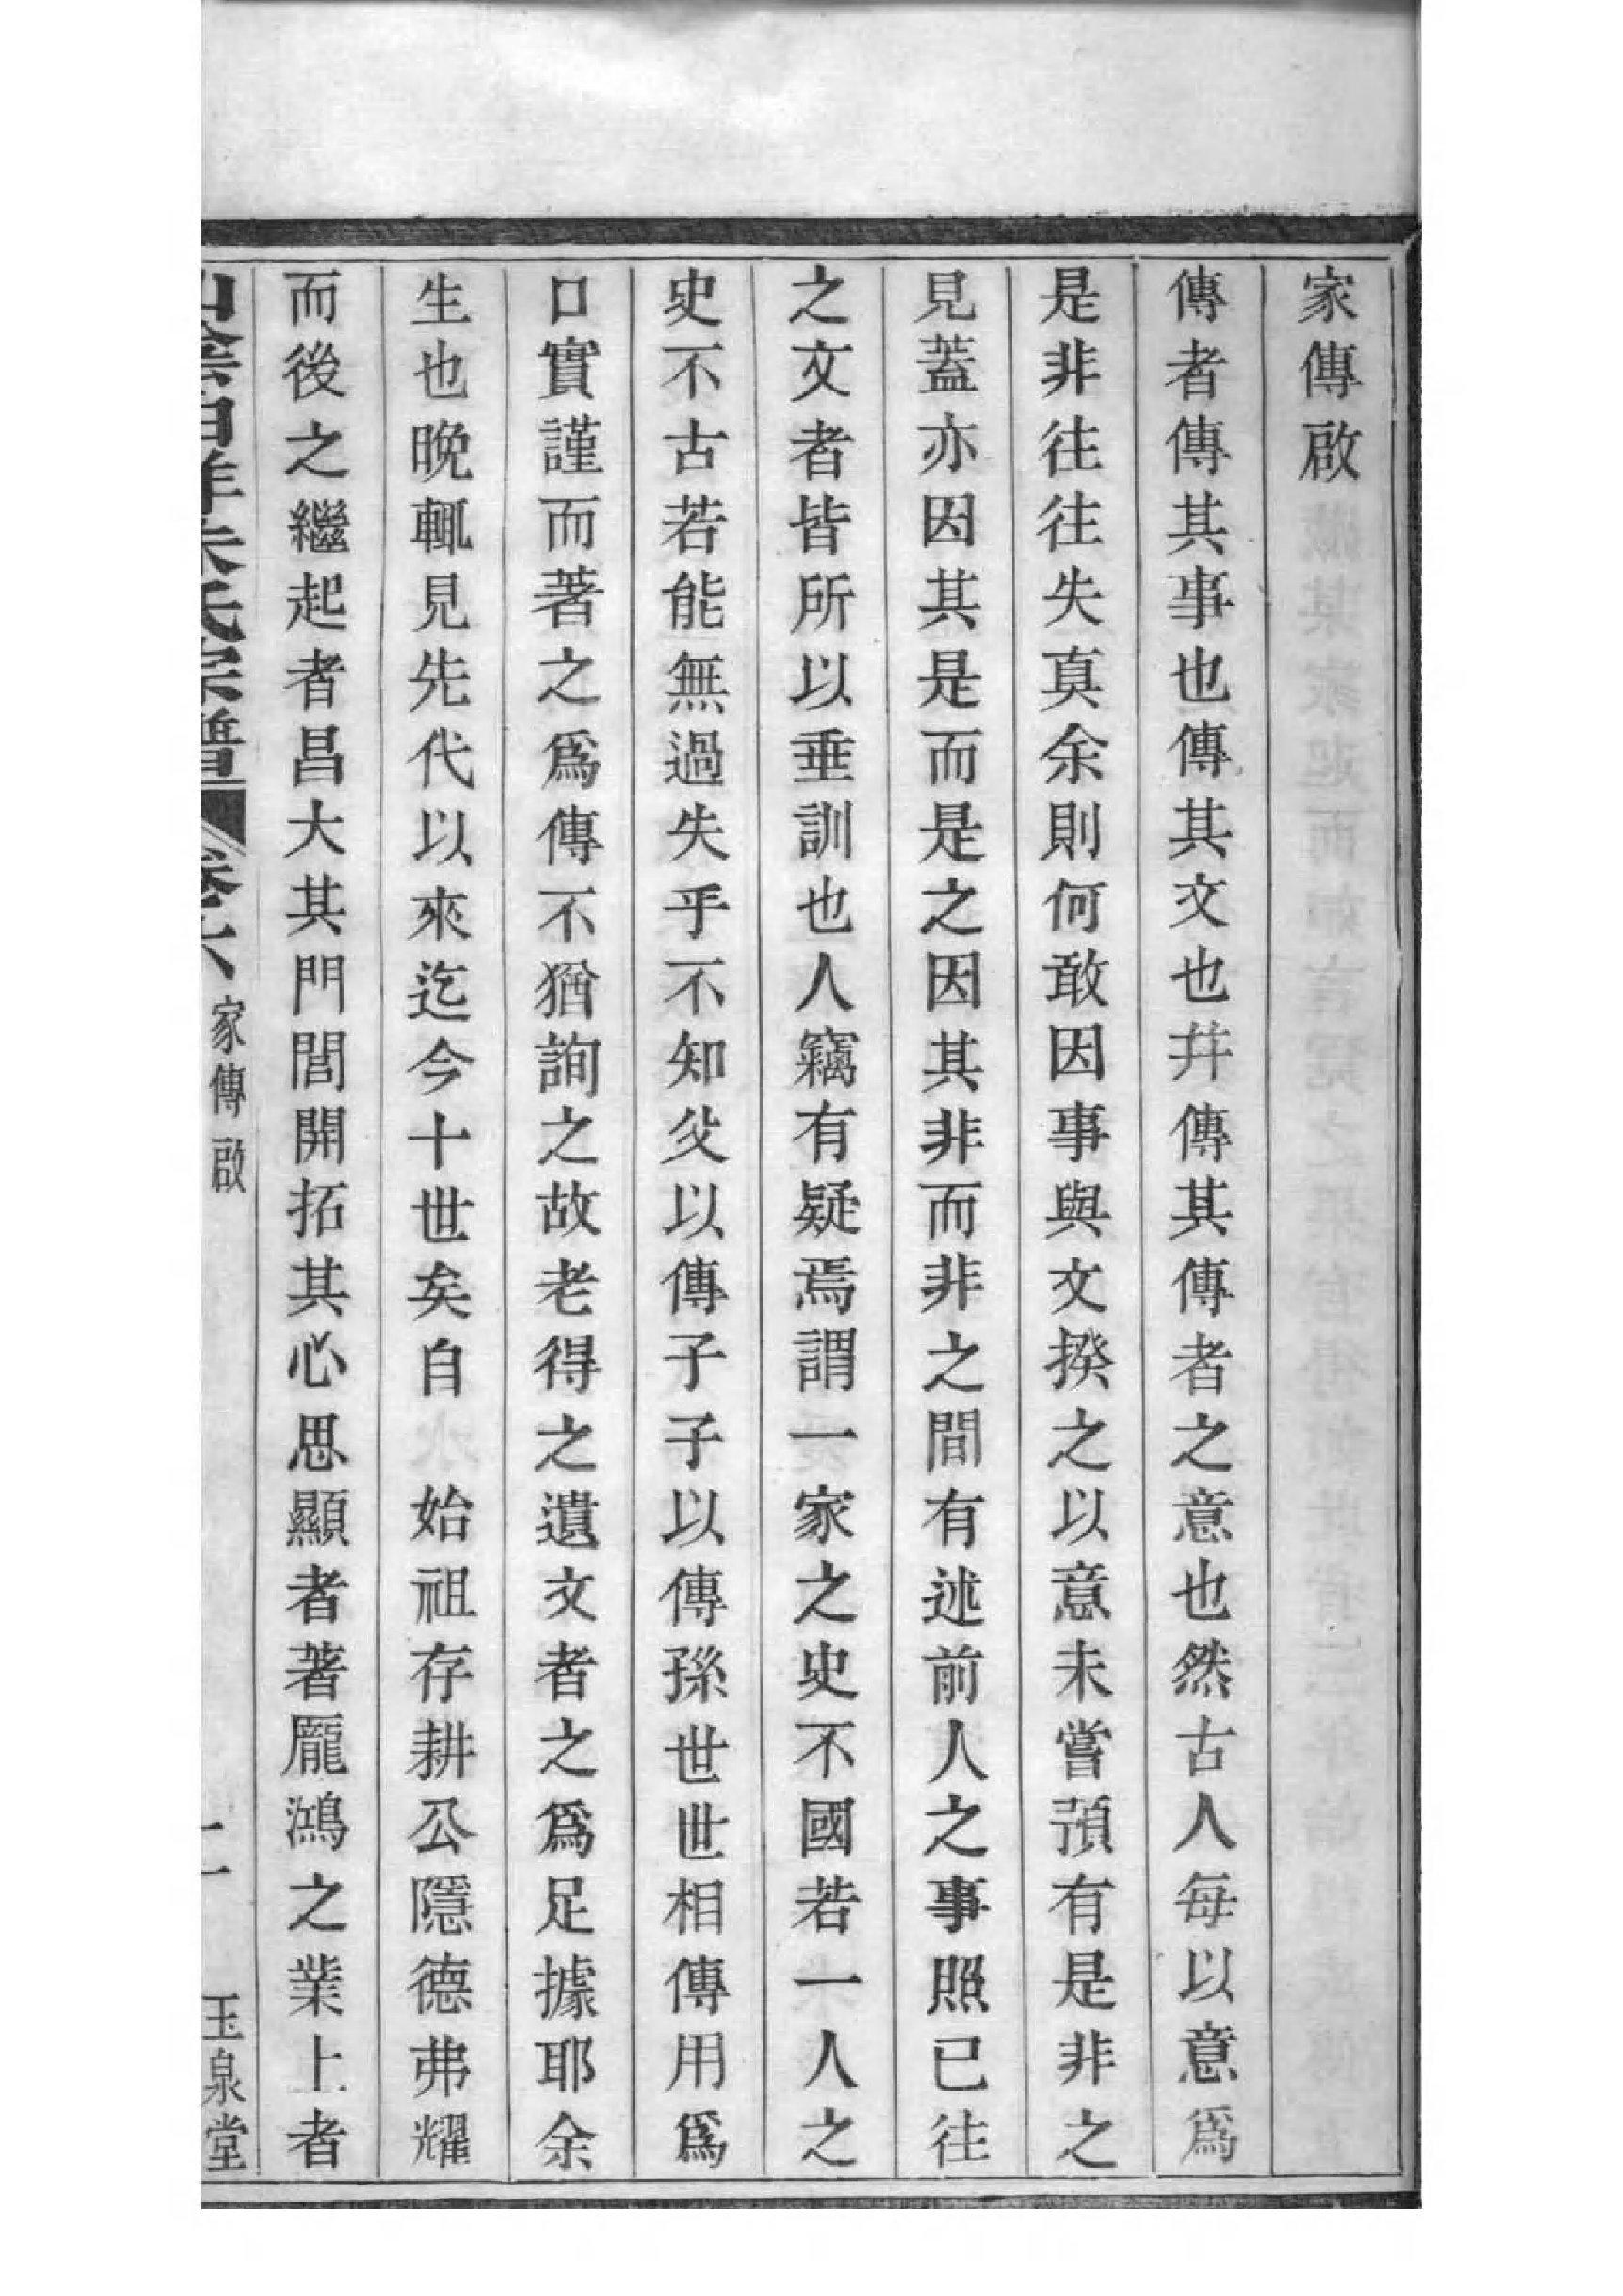 家傳啟
傳者傳其事也傳其文也幷傳其傳者之意也然古人每以意爲
是非往往失真余則何敢因事與文揆之以意未嘗預有是非之
見蓋亦因其是而是之因其非而非之間有述前人之事照已往
之文者皆所以垂訓也人竊有疑焉謂一家之史不國若一人之
史不古若能無過失乎不知父以傳子子以傳孫世世相傳用爲
口實謹而著之爲傳不猶詢之故老得之遺文者之爲足據耶余
生也晚輒見先代以來迄今十世矣自　始祖存耕公隱德弗耀
而後之繼起者昌大其門閭開拓其心思顯者著龐鴻之業上者
山陰白洋朱氏宗譜 卷六 家傳啟 二 玉泉堂